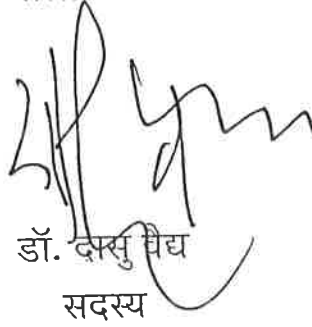 डॉ. दासु वैद्य
सदस्य